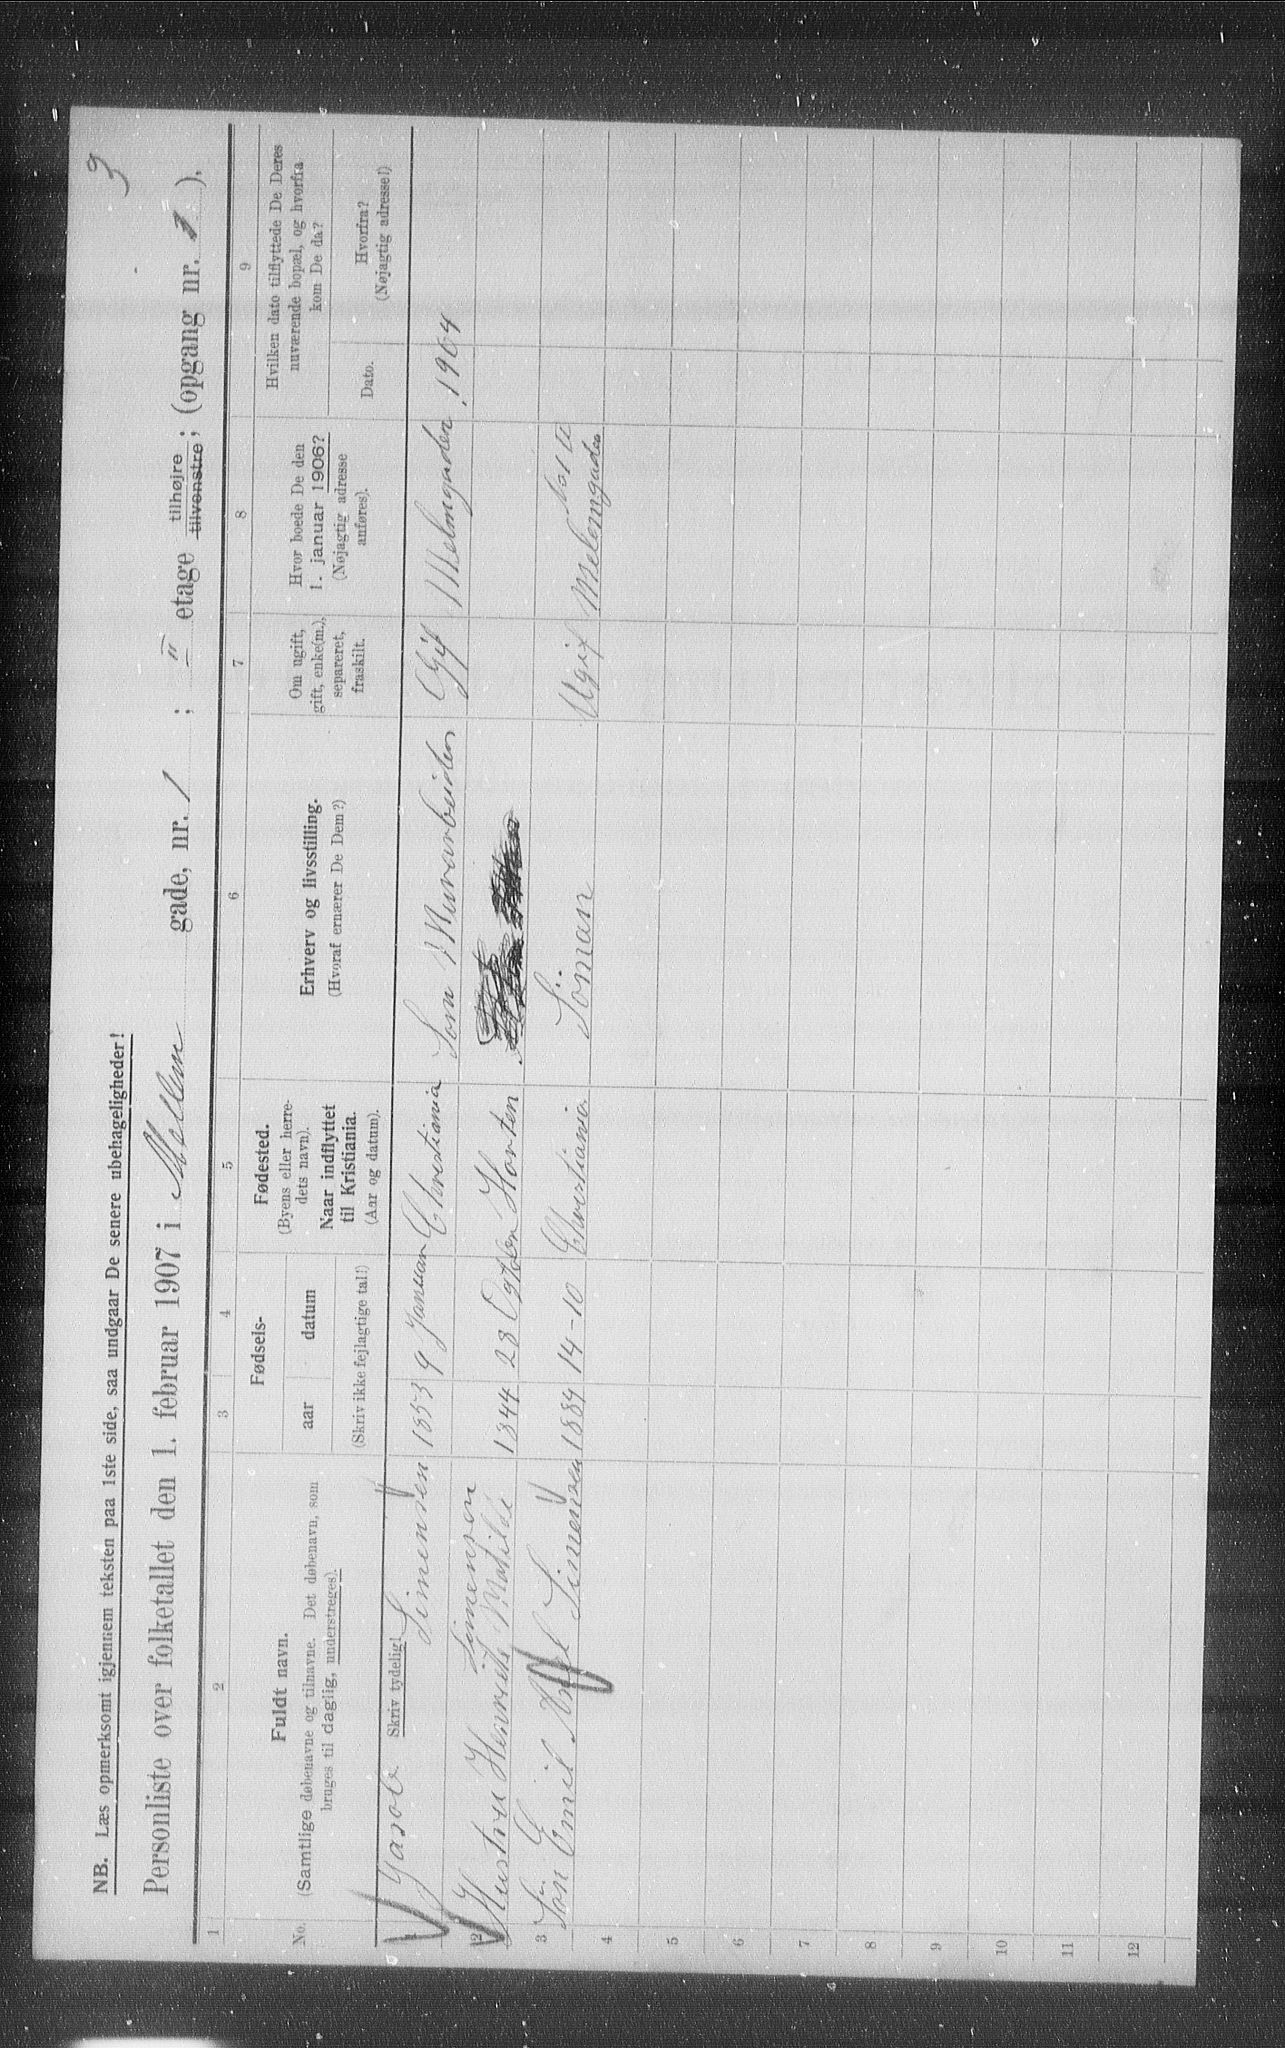 3
NB. Læs opmerksomt igjennem teksten paa 1ste side, saa undgaar De senere ubehageligheder!
Personliste over folketallet den 1. februar 1907 i Mellem gade, nr. 1 ; II etage tilhøjre tilvenstre; (opgang nr. 1 ).
1 2 3 4 5 6 7 8 9
No.
Fuldt navn.
(Samtlige døbenavne og tilnavne. Det døbenavn, som
bruges til daglig, understreges).
Skriv tydelig!
Fødsels-
aar datum
(Skriv ikke fejlagtige tal!)
Fødested.
(Byens eller herre-
dets navn).
Naar indflyttet
til Kristiania.
(Aar og datum).
Erhverv og livsstilling.
(Hvoraf ernærer De Dem?)
Om ugift,
gift, enke(m.),
separeret,
fraskilt.
Hvor boede De den
1. januar 1906?
(Nøjagtig adresse
anføres).
Hvilken dato tilflyttede De Deres
nuværende bopæl, og hvorfra
kom De da?
Dato.
Hvorfra?
(Nøjagtig adresse!)
1 Jasob Simensen 1853 9 Januar Christiania Som Murarbeider Gift Melmgaden 1904
Simensen
2 Hustru Henriette Matilde 1844 28 Ogtober Horten
3 Sön Emil Axel Simensen 1889 14-10 Christiania Söman Ugift Melemgaden
4
5
6
7
8
9
10
11
12